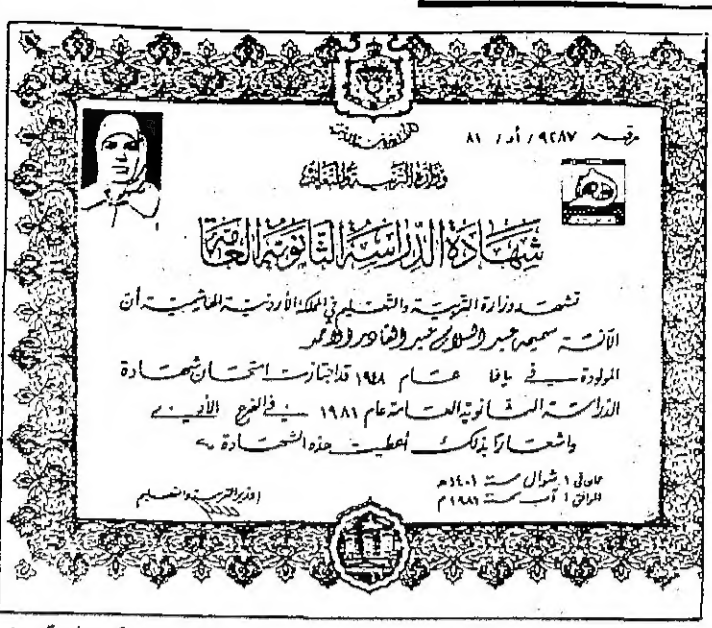 رقم ٩٢٨٧ / أد / ٨١
المملكة الأردنية الهاشمية
وزارة التربية والتعليم
شهادة الدراسة الثانوية العامة
تشهد وزارة التربية والتعليم في المملكة الأردنية الهاشمية أن
الآنسة سميحه عبد السلام عبد القادر الاحمد
المولودة في يافا عام ١٩٤٨ قد اجتازت امتحان شهادة
الدراسة الثانوية العامة عام ١٩٨١ في الفرع الأدبي
واشعارا بذلك أعطيت هذه الشهادة
عمان في ١ شوال سنة ١٤٠١ هـ
الموافق ١ آب سنة ١٩٨١ م
وزير التربية والتعليم